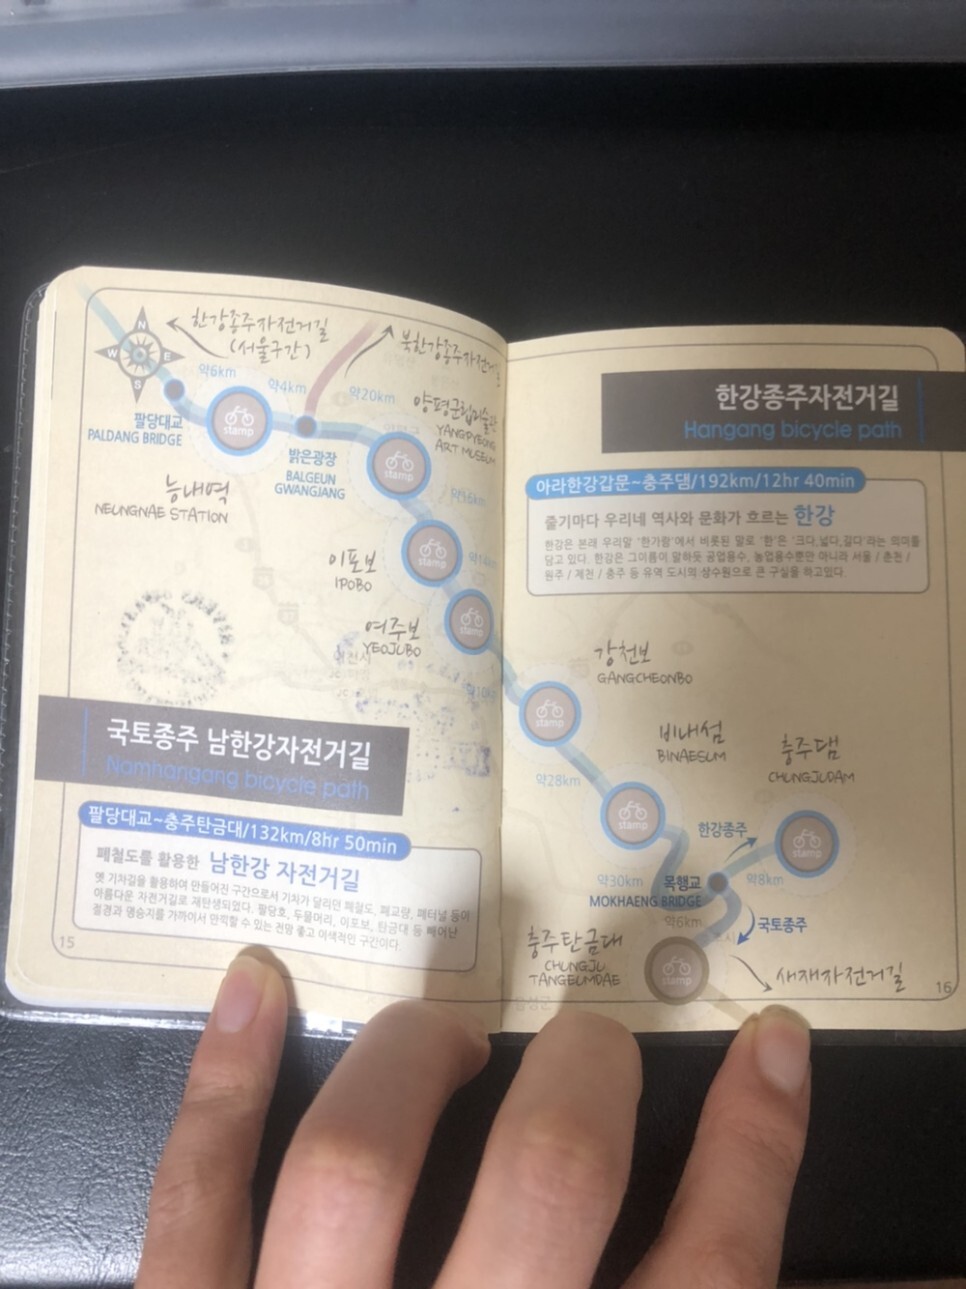 N
W E
S
한강종주자전거길
(서울구간)
북한강종주자전거길
약6km
약4km
약20km
팔당대교
PALDANG BRIDGE
stamp
밝은광장
BALGEUN
GWANGJANG
양평군립미술관
YANGPYEONG
ART MUSEUM
stamp
능내역
NEUNGNAE STATION
이포보
IPOBO
stamp
여주보
YEOJUBO
stamp
국토종주 남한강자전거길
Namhangang bicycle path
팔당대교~충주탄금대/132km/8hr 50min
폐철도를 활용한 남한강 자전거길
옛 기차길을 활용하여 만들어진 구간으로서 기차가 달리던 폐철도, 폐교량, 폐터널 등이
아름다운 자전거길로 재탄생되었다. 팔당호, 두물머리, 이포보, 탄금대 등 빼어난
절경과 명승지를 가까이서 만끽할 수 있는 전망 좋고 이색적인 구간이다.
15
한강종주자전거길
Hangang bicycle path
아라한강갑문~충주댐/192km/12hr 40min
줄기마다 우리네 역사와 문화가 흐르는 한강
한강은 본래 우리말 '한가람'에서 비롯된 말로 '한'은 '크다,넓다,길다'라는 의미를
담고 있다. 한강은 그이름이 말하듯 공업용수, 농업용수뿐만 아니라 서울 / 춘천 /
원주 / 제천 / 충주 등 유역 도시의 상수원으로 큰 구실을 하고있다.
강천보
GANGCHEONBO
stamp
비내섬
BINAESUM
충주댐
CHUNGJUDAM
약28km
stamp
한강종주
stamp
약30km
목행교
MOKHAENG BRIDGE
약8km
약6km
국토종주
충주탄금대
CHUNGJU
TANGEUMDAE
stamp
새재자전거길
16